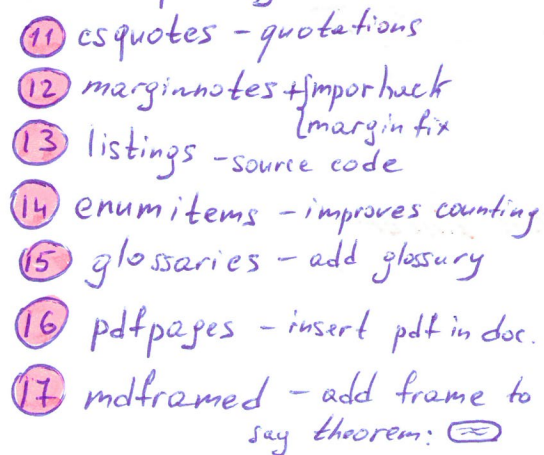 11 csquotes - quotations
12 marginnotes + { mporhack
{ margin fix
13 listings - source code
14 enumitems - improves counting
15 glossaries - add glossury
16 pdfpages - insert pdf in doc.
17 mdframed - add frame to
say theorem: